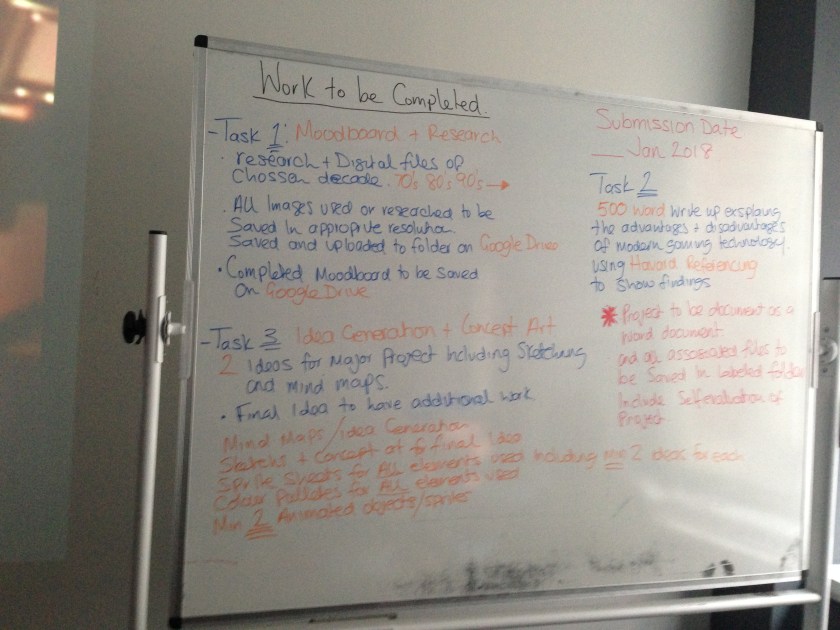 Work to be Completed.
- Task 1: Moodboard + Research
· research + Digital files of
Chossen decade. 70's 80's 90's →
· All Images used or reseached to be
Saved In approprive resolution.
Saved and uploaded to folder on Google Drive
· Completed Moodboard to be Saved
on Google Drive
- Task 3 Idea Generation + Concept Art
2 Ideas for Major Project Including Sketching
and mind maps.
· Final Idea to have additional work
Mind Maps / Idea Generation
Sketchs + Concept art for final Idea
Sprite Sheats for ALL elements used Including Min 2 ideas for each
Colour Pallates for ALL elements used
Min 2 Animated objects/sprites
Submission Date
__ Jan 2018
Task 2
500 Word write up explaing
the advantages + disadvantages
of modern gaming technology
using Havard Referencing
to show findings
* Project to be document as a
Word document
and all associated files to
be Saved In Labeled folder
Include Self evaluation of
Project.